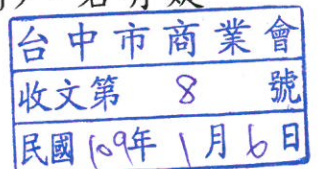 台中市商業會
收文第 8 號
民國109年1月6日